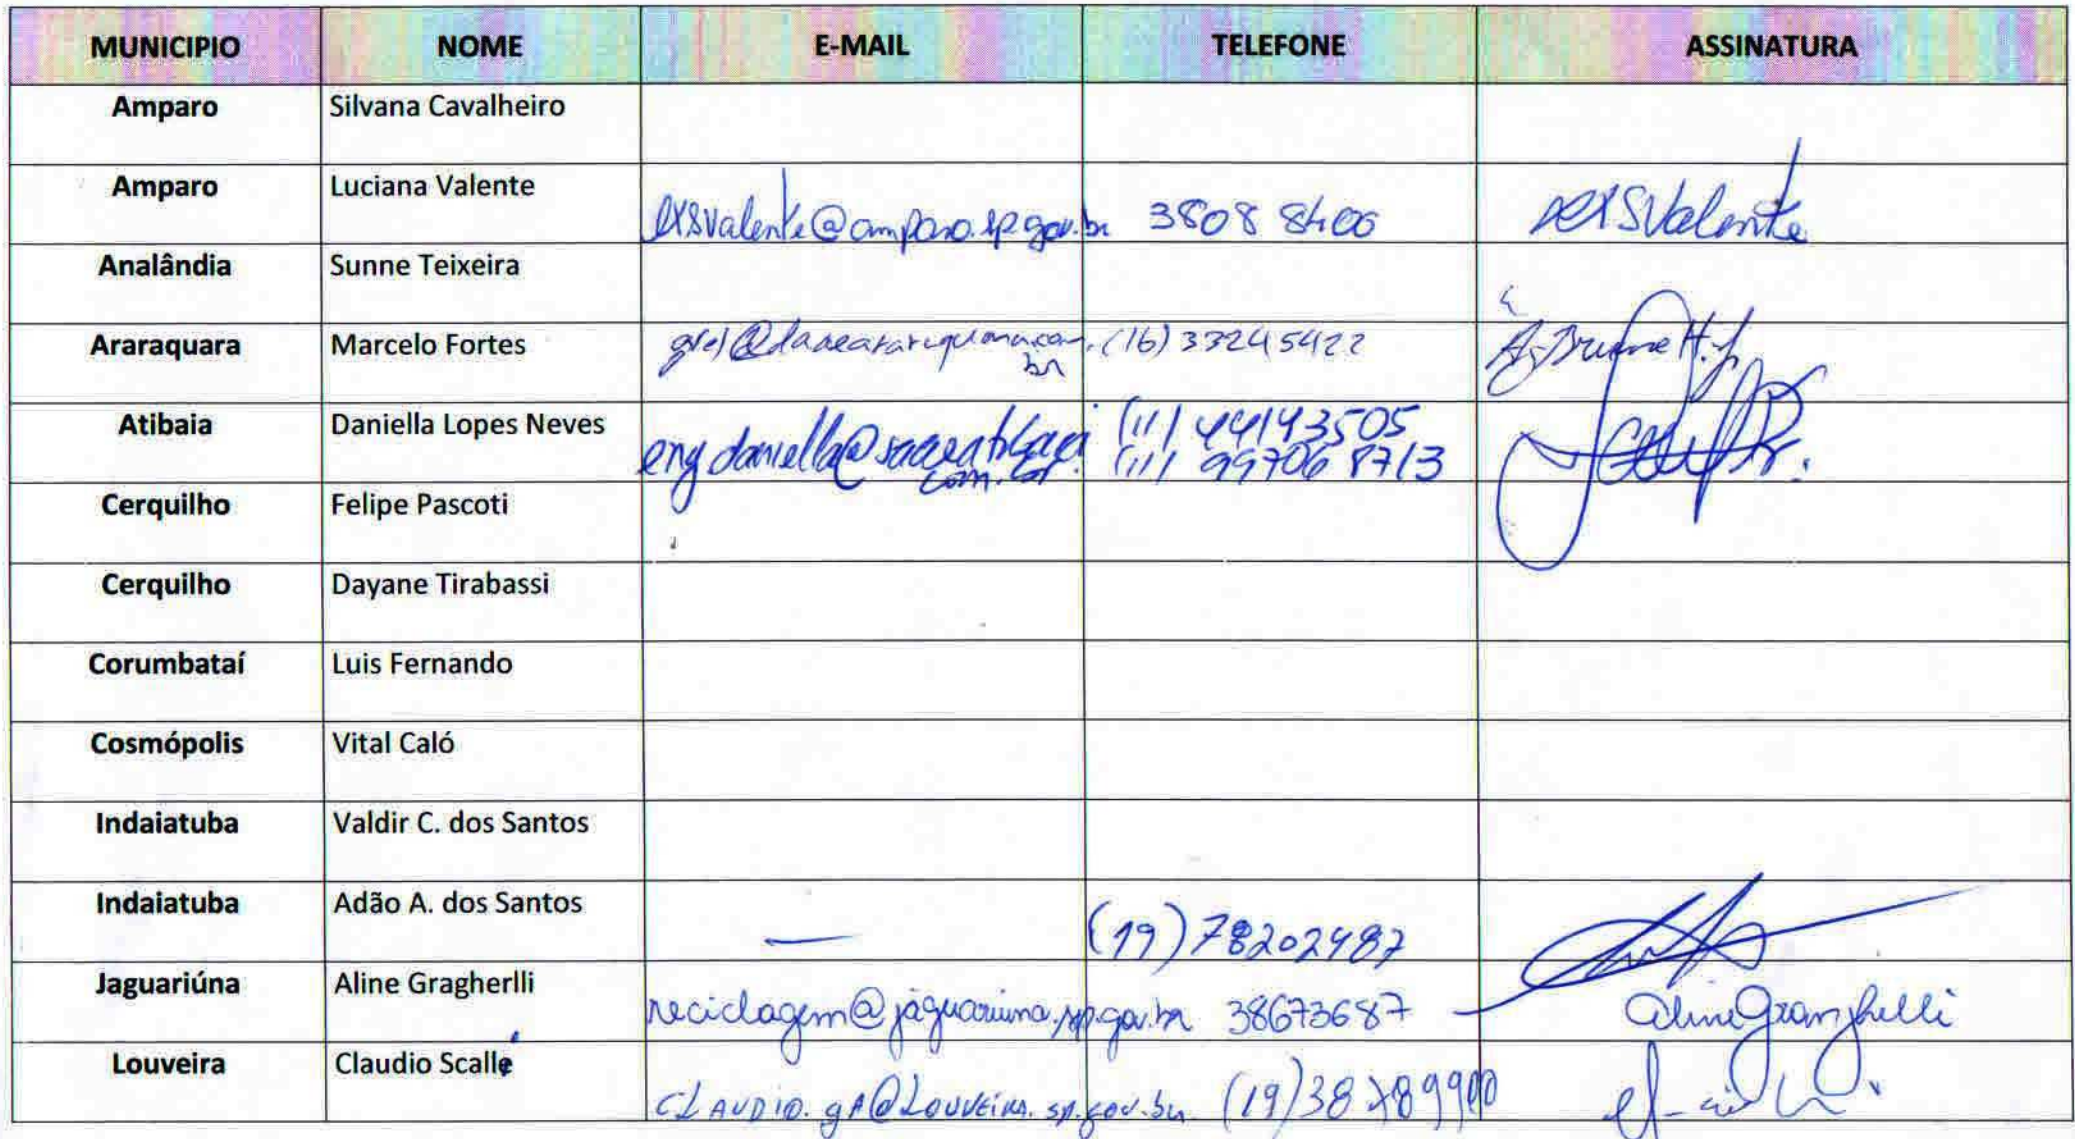 MUNICIPIO NOME E-MAIL TELEFONE ASSINATURA
Amparo Silvana Cavalheiro
Amparo Luciana Valente @amparo.sp.gov.br 3808 8400
Analândia Sunne Teixeira
Araraquara Marcelo Fortes (16) 33245422
br
Atibaia Daniella Lopes Neves (11) 44143505
eng.daniella@saaeatibaia. (11) 99706 8713
com.br
Cerquilho Felipe Pascoti
Cerquilho Dayane Tirabassi
Corumbataí Luis Fernando
Cosmópolis Vital Caló
Indaiatuba Valdir C. dos Santos
Indaiatuba Adão A. dos Santos — (19) 78202487
Jaguariúna Aline Gragherlli reciclagem@jaguariuna.sp.gov.br 38673687 Aline Granghelli
Louveira Claudio Scallé CLAUDIO.gA@Louveira.sp.gov.br (19)38789900